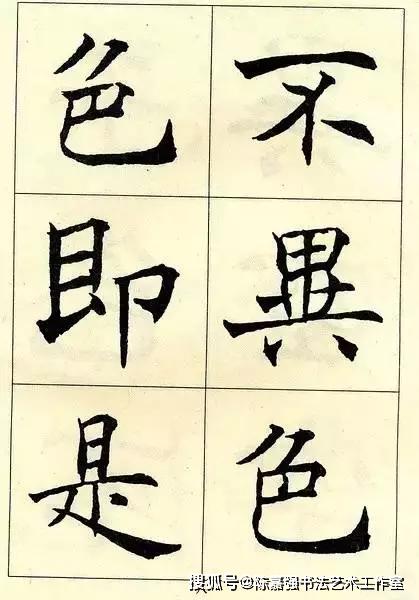 不異色
色即是
搜狐号@陈嘉强书法艺术工作室